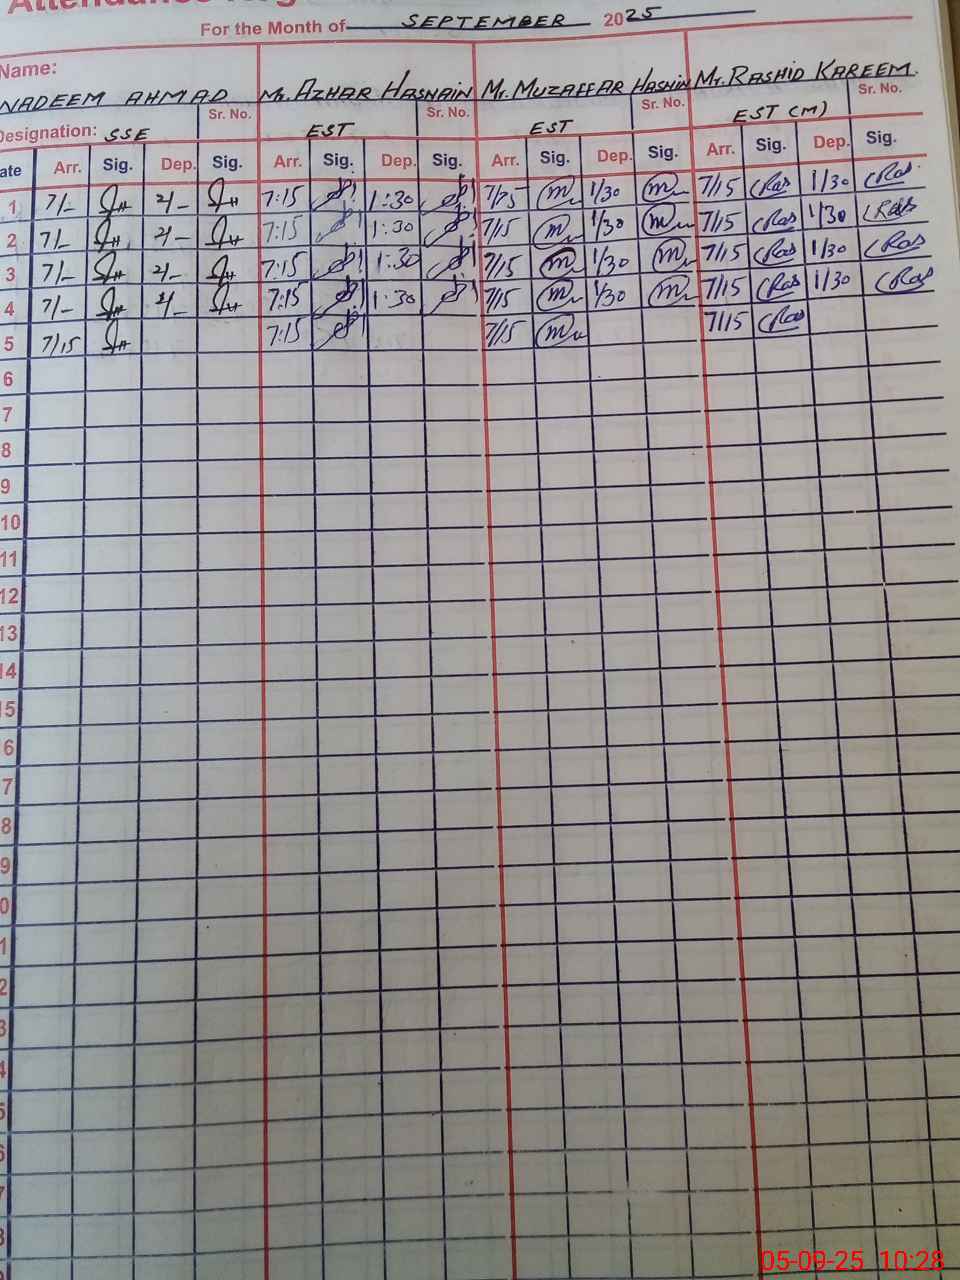 For the Month of SEPTEMBER 2025
Name:
NADEEM AHMAD Mr. AZHAR HASNAIN Mr. MUZAFFAR HASNIN Mr. RASHID KAREEM.
Sr. No. Sr. No. Sr. No. Sr. No.
Designation: SSE EST EST EST (M)
Arr. Sig. Dep. Sig. Arr. Sig. Dep. Sig. Arr. Sig. Dep. Sig. Arr. Sig. Dep. Sig.
1 7/- 2/- 7:15 1:30 7/15 1/30 7/15 1/30
2 7/- 2/- 7:15 1:30 7/15 1/30 7/15 1/30
3 7/- 2/- 7:15 1:30 7/15 1/30 7/15 1/30
4 7/- 2/- 7:15 1:30 7/15 1/30 7/15 1/30
5 7/15 7:15 7/15 7/15
6
7
8
9
10
11
12
13
14
15
6
7
8
9
0
1
2
3
4
5
6
7
8
05-09-25 10:28